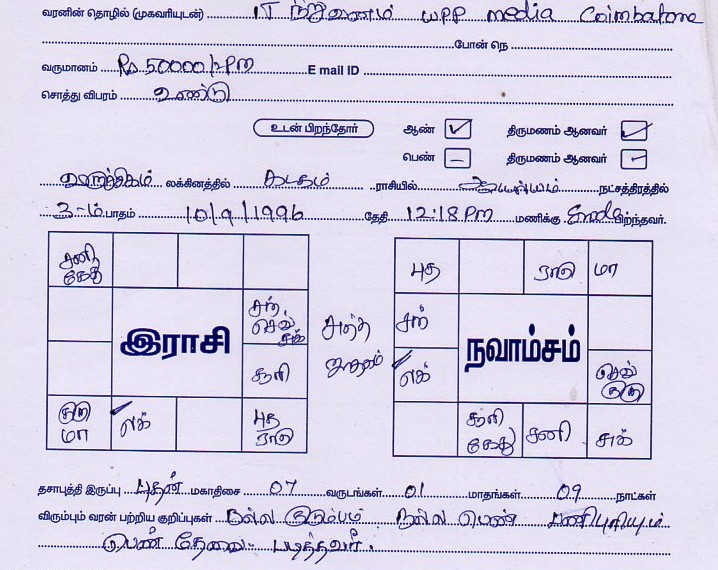 வரனின் தொழில் (முகவரியுடன்) IT நிறுவனம் WPP media Coimbatore
போன் நெ
வருமானம் Rs 50000/- Pm E mail ID
சொத்து விபரம் உண்டு
உடன் பிறந்தோர் ஆண் ✓ திருமணம் ஆனவர் ✓
பெண் — திருமணம் ஆனவர் -
விருச்சிகம் லக்கினத்தில் கடகம் ராசியில் ஆயில்யம் நட்சத்திரத்தில்
3-ம் பாதம் 10/9/1996 தேதி 12:18 PM மணிக்கு Erode பிறந்தவர்.
சனி கேது
சந் செவ் சுக்
சூரி
குரு மா
லக்
புத ராகு
இராசி
புத ராகு மா
சந்
லக்
செவ் குரு
சூரி கேது சனி சுக்
நவாம்சம்
தசாபுத்தி இருப்பு புதன் மகாதிசை 07 வருடங்கள் 01 மாதங்கள் 09 நாட்கள்
விரும்பும் வரன் பற்றிய குறிப்புகள் நல்ல குடும்பம் நல்ல பெண் பணிபுரியும்
பெண் தேவை. படித்தவர்.